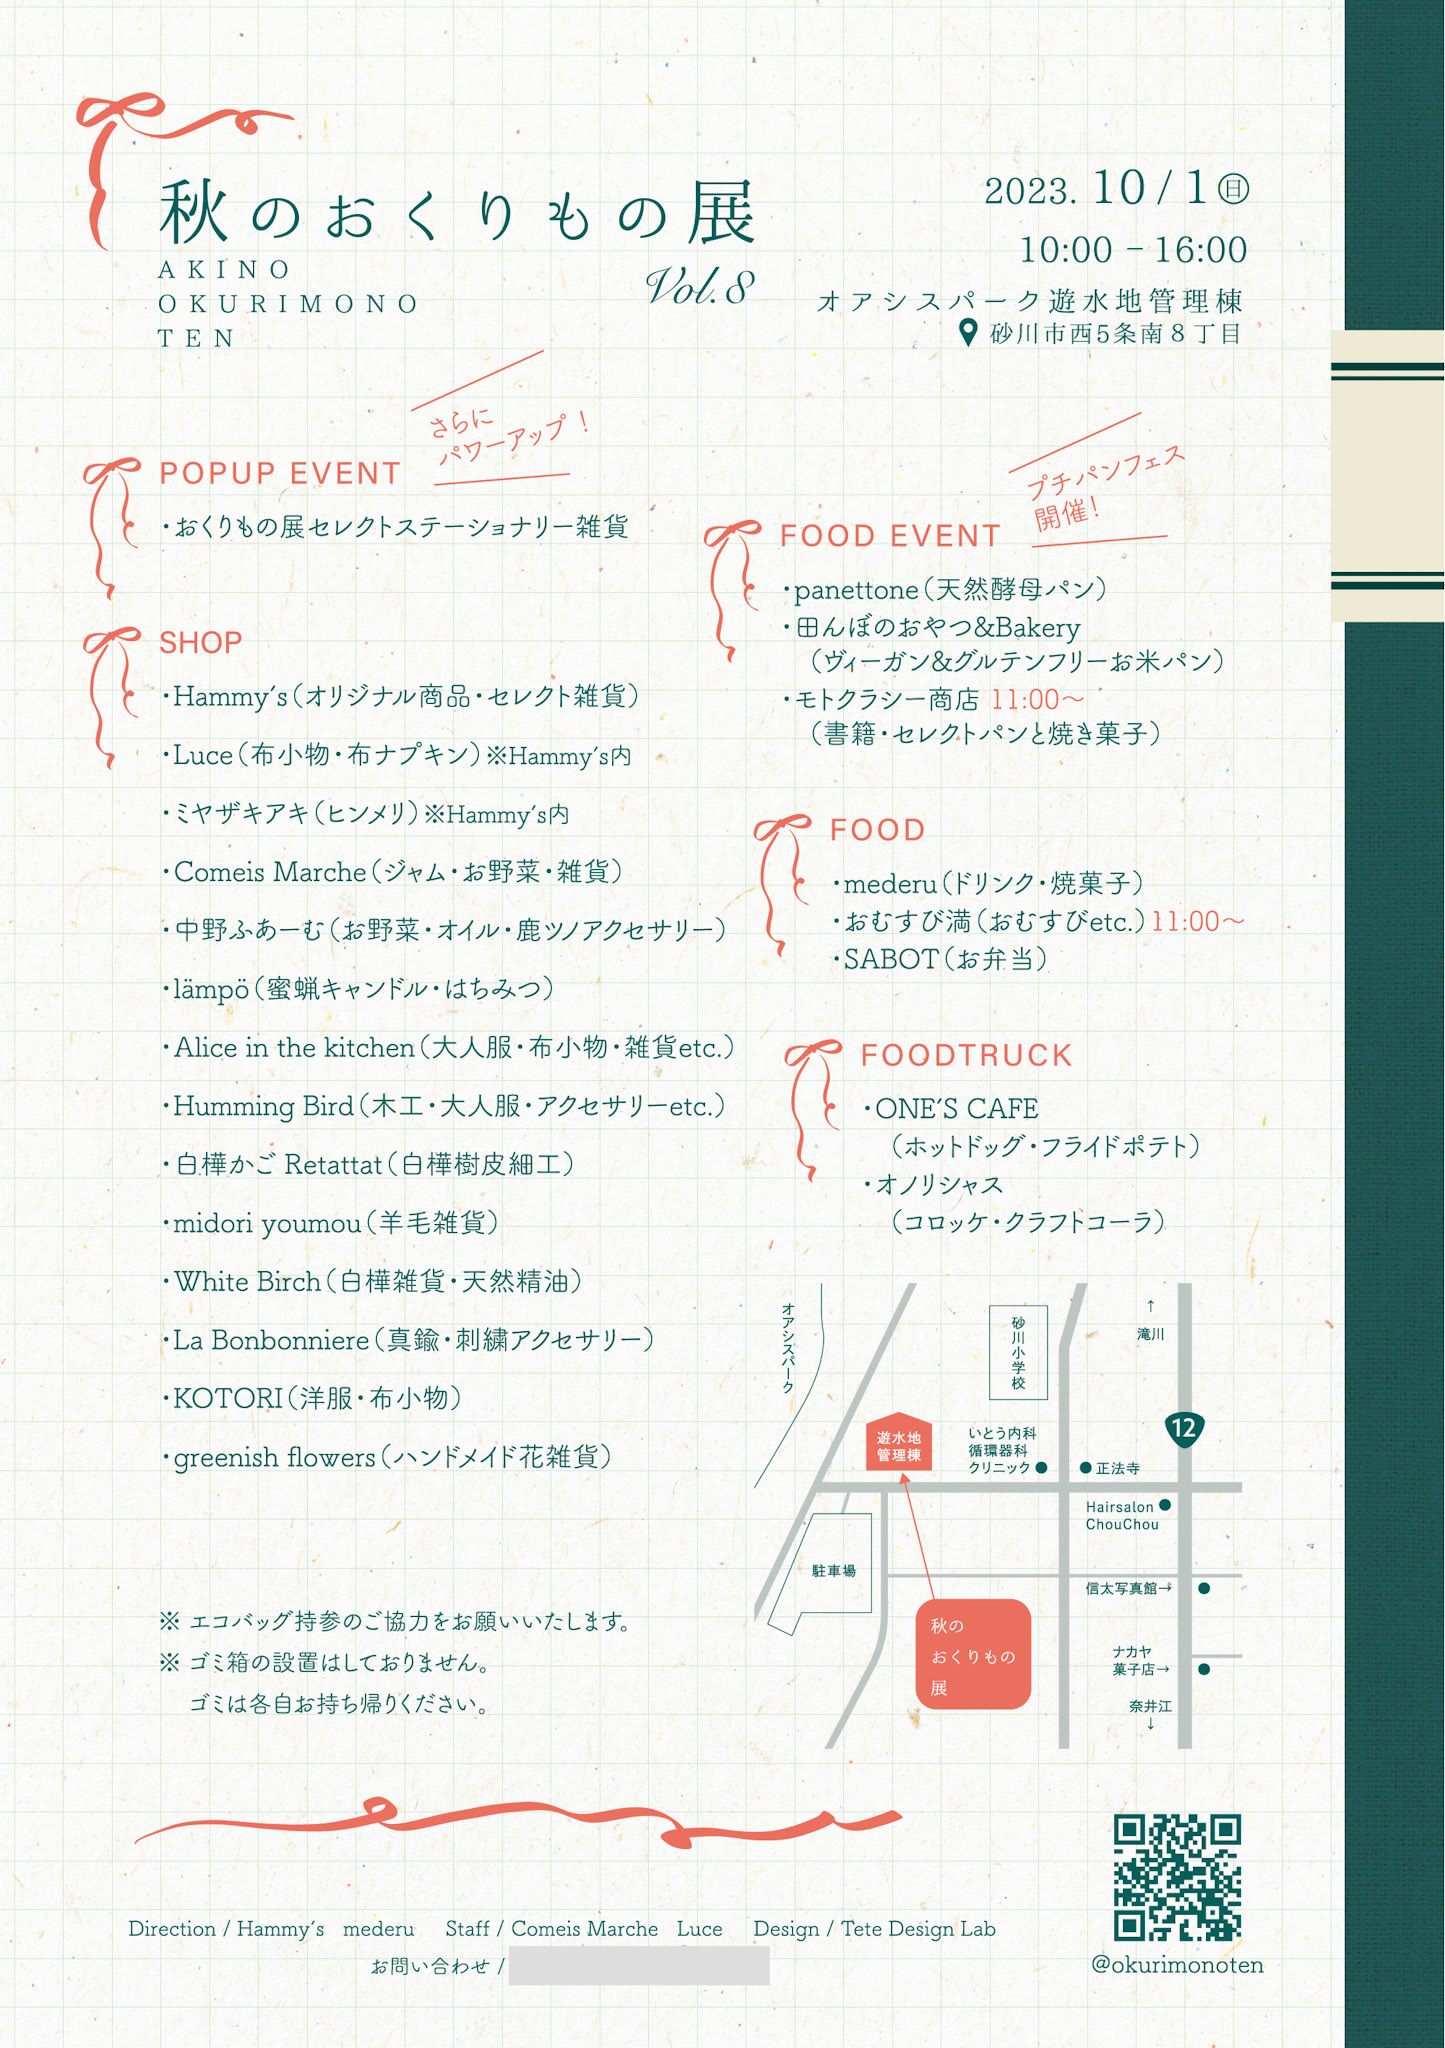 秋のおくりもの展
AKINO
OKURIMONO
TEN
Vol.8
2023. 10/1㊐
10:00 − 16:00
オアシスパーク遊水地管理棟
砂川市西5条南8丁目
さらに
パワーアップ！
POPUP EVENT
・おくりもの展セレクトステーショナリー雑貨
SHOP
・Hammy's（オリジナル商品・セレクト雑貨）
・Luce（布小物・布ナプキン）※Hammy's内
・ミヤザキアキ（ヒンメリ）※Hammy's内
・Comeis Marche（ジャム・お野菜・雑貨）
・中野ふぁーむ（お野菜・オイル・鹿ツノアクセサリー）
・lämpö（蜜蝋キャンドル・はちみつ）
・Alice in the kitchen（大人服・布小物・雑貨etc.）
・Humming Bird（木工・大人服・アクセサリーetc.）
・白樺かご Retattat（白樺樹皮細工）
・midori youmou（羊毛雑貨）
・White Birch（白樺雑貨・天然精油）
・La Bonbonniere（真鍮・刺繍アクセサリー）
・KOTORI（洋服・布小物）
・greenish flowers（ハンドメイド花雑貨）
プチパンフェス
開催！
FOOD EVENT
・panettone（天然酵母パン）
・田んぼのおやつ&Bakery
（ヴィーガン&グルテンフリーお米パン）
・モトクラシー商店 11:00〜
（書籍・セレクトパンと焼き菓子）
FOOD
・mederu（ドリンク・焼菓子）
・おむすび満（おむすびetc.）11:00〜
・SABOT（お弁当）
FOODTRUCK
・ONE'S CAFE
（ホットドッグ・フライドポテト）
・オノリシャス
（コロッケ・クラフトコーラ）
オアシスパーク
砂川小学校
↑
滝川
12
遊水地
管理棟
いとう内科
循環器科
クリニック
正法寺
Hairsalon
ChouChou
駐車場
信太写真館→
秋の
おくりもの
展
ナカヤ
菓子店→
奈井江
↓
※ エコバッグ持参のご協力をお願いいたします。
※ ゴミ箱の設置はしておりません。
ゴミは各自お持ち帰りください。
Direction / Hammy's mederu Staff / Comeis Marche Luce Design / Tete Design Lab
お問い合わせ /
@okurimonoten